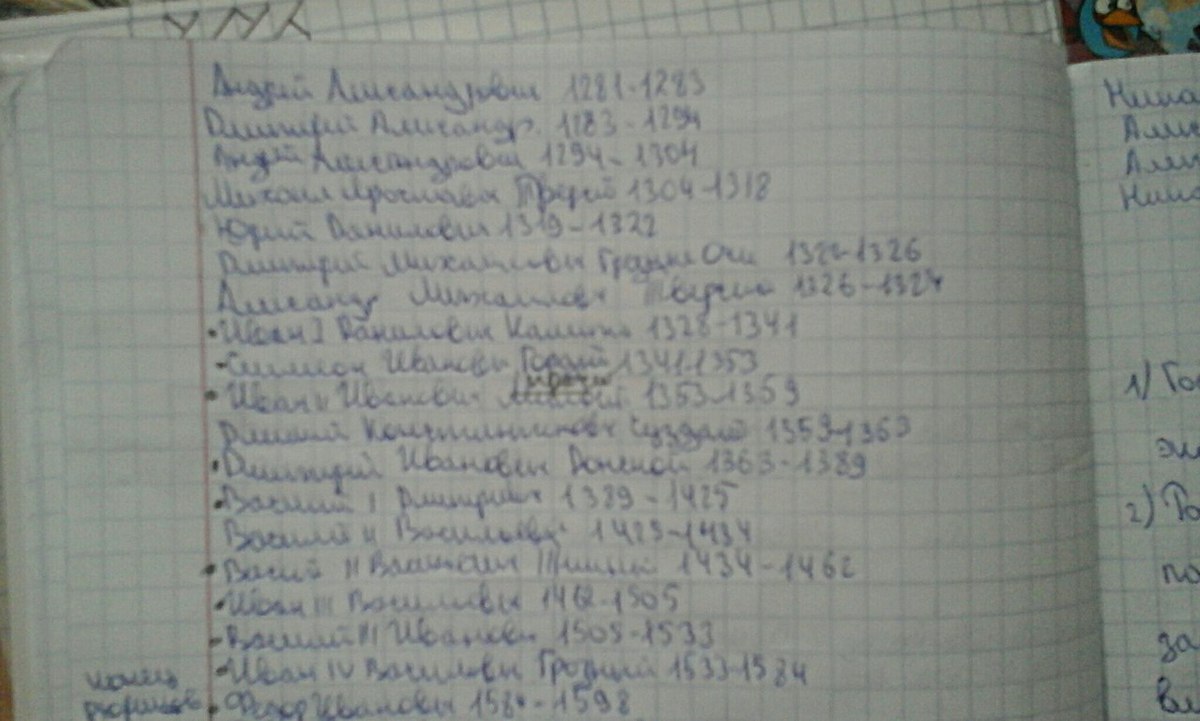 Андрей Александрович 1281-1283
Дмитрий Александр. 1283-1294
Андрей Александрович 1294-1304
Михаил Ярославич Тверей 1304-1318
Юрий Данилович 1319-1322
Дмитрий Михайлович Грозные Очи 1322-1326
Александр Михайлович 1326-1327
Иван I Данилович Калита 1328-1341
Симеон Иванович Гордый 1341-1353
Иван II Иванович 1353-1359
Константинович Суздал 1359-1363
Дмитрий Иванович Донской 1363-1389
Василий I Дмитриевич 1389-1425
Василий II Васильевич 1425-1434
II 1434-1462
Иван III Васильевич 1462-1505
Василий III Иванович 1505-1533
Иван IV Васильевич Грозный 1533-1584
конец
Федор Иванович 1584-1598
1)
2)
по
за